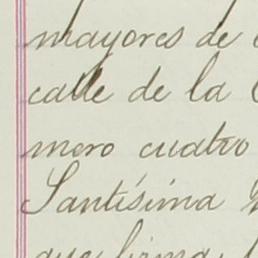 mayores de
calle de la
mero cuatro
Santísima
que firma